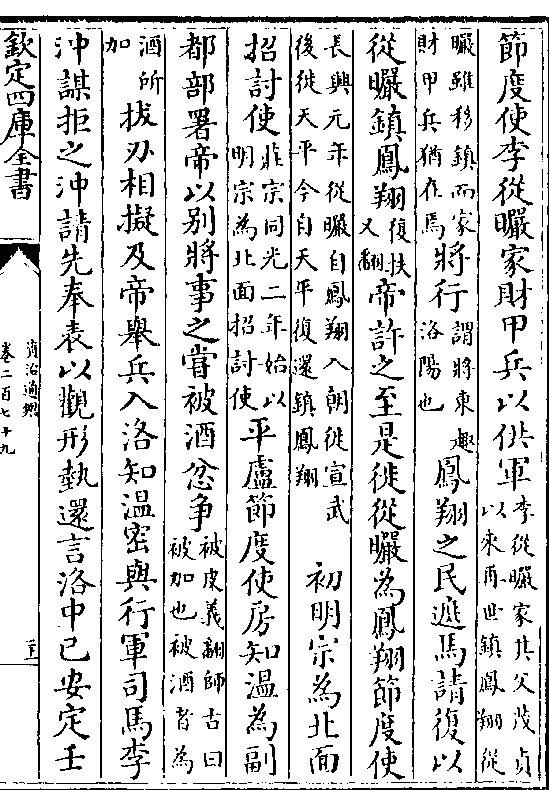 節度使李從曮家財甲兵以供軍李從曮家其父茂貞以來再世鎮鳳翔從
曮雖移鎮而家財甲兵猶在焉將行謂將東趣洛陽也鳳翔之民遮馬請復以
從曮鎮鳳翔復扶又翻帝許之至是徙從曮為鳳翔節度使
長興元年從曮自鳳翔入朝徙宣武後徙天平今自天平復還鎮鳳翔初明宗為北面
招討使莊宗同光二年始以明宗為北面招討使平盧節度使房知溫為副
都部署帝以别將事之嘗被酒忿争被皮義翻師古曰被加也被酒者為
酒所加拔刃相擬及帝舉兵入洛知溫密與行軍司馬李
沖謀拒之沖請先奉表以觀形埶還言洛中已安定壬
欽定四庫全書
資治通鑑
卷二百七十九